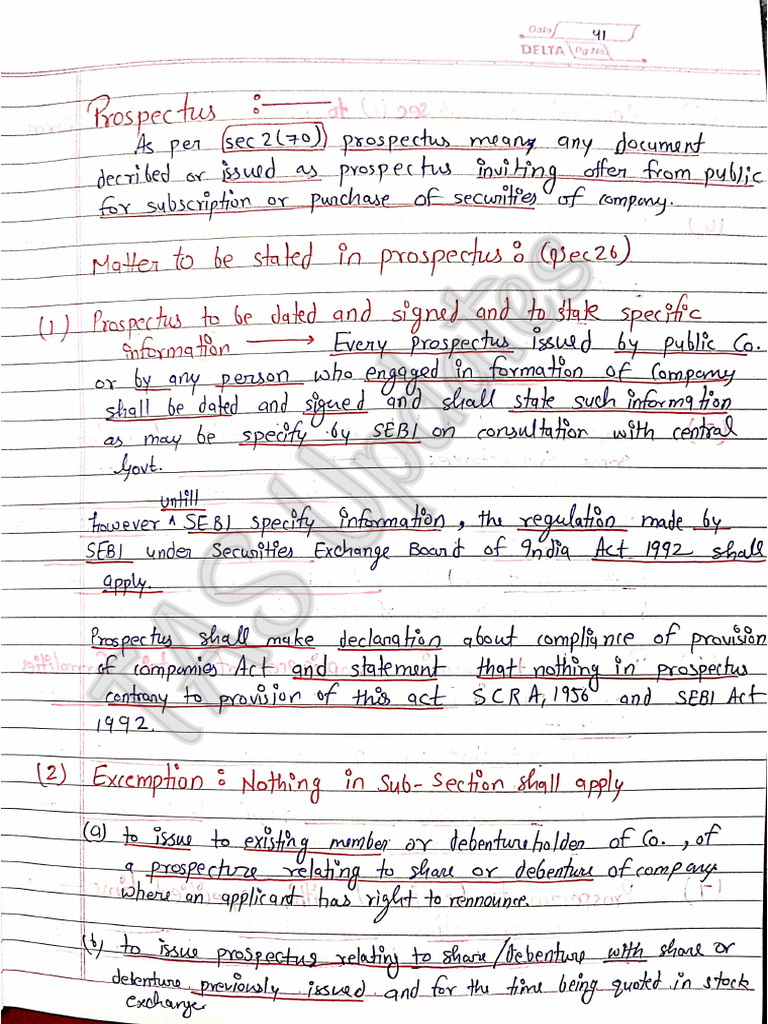 Date 41
DELTA Pg No
Prospectus :
As per sec 2(70) prospectus means any document
decribed or issued as prospectus inviting offer from public
for subscription or purchase of securities of company.
Matter to be stated in prospectus : (sec 26)
(1) Prospectus to be dated and signed and to state specific
information → Every prospectus issued by public Co.
or by any person who engaged in formation of Company
shall be dated and signed and shall state such information
as may be specify by SEBI on consultation with central
Govt.
untill
however ^ SEBI specify information, the regulation made by
SEBI under Securities Exchange Board of India Act 1992 shall
apply.
Prospectus shall make declaration about compliance of provision
of companies Act and statement that nothing in prospectus
contrary to provision of this act SCRA, 1956 and SEBI Act
1992.
(2) Excemption : Nothing in Sub-Section shall apply
(a) to issue to existing member or debentureholder of Co., of
a prospecture relating to share or debenture of company
where an applicant has right to rennounce.
(b) to issue prospectus relating to share/Debenture with share or
debenture previously issued and for the time being quoted in stock
exchange.
TAS Updates